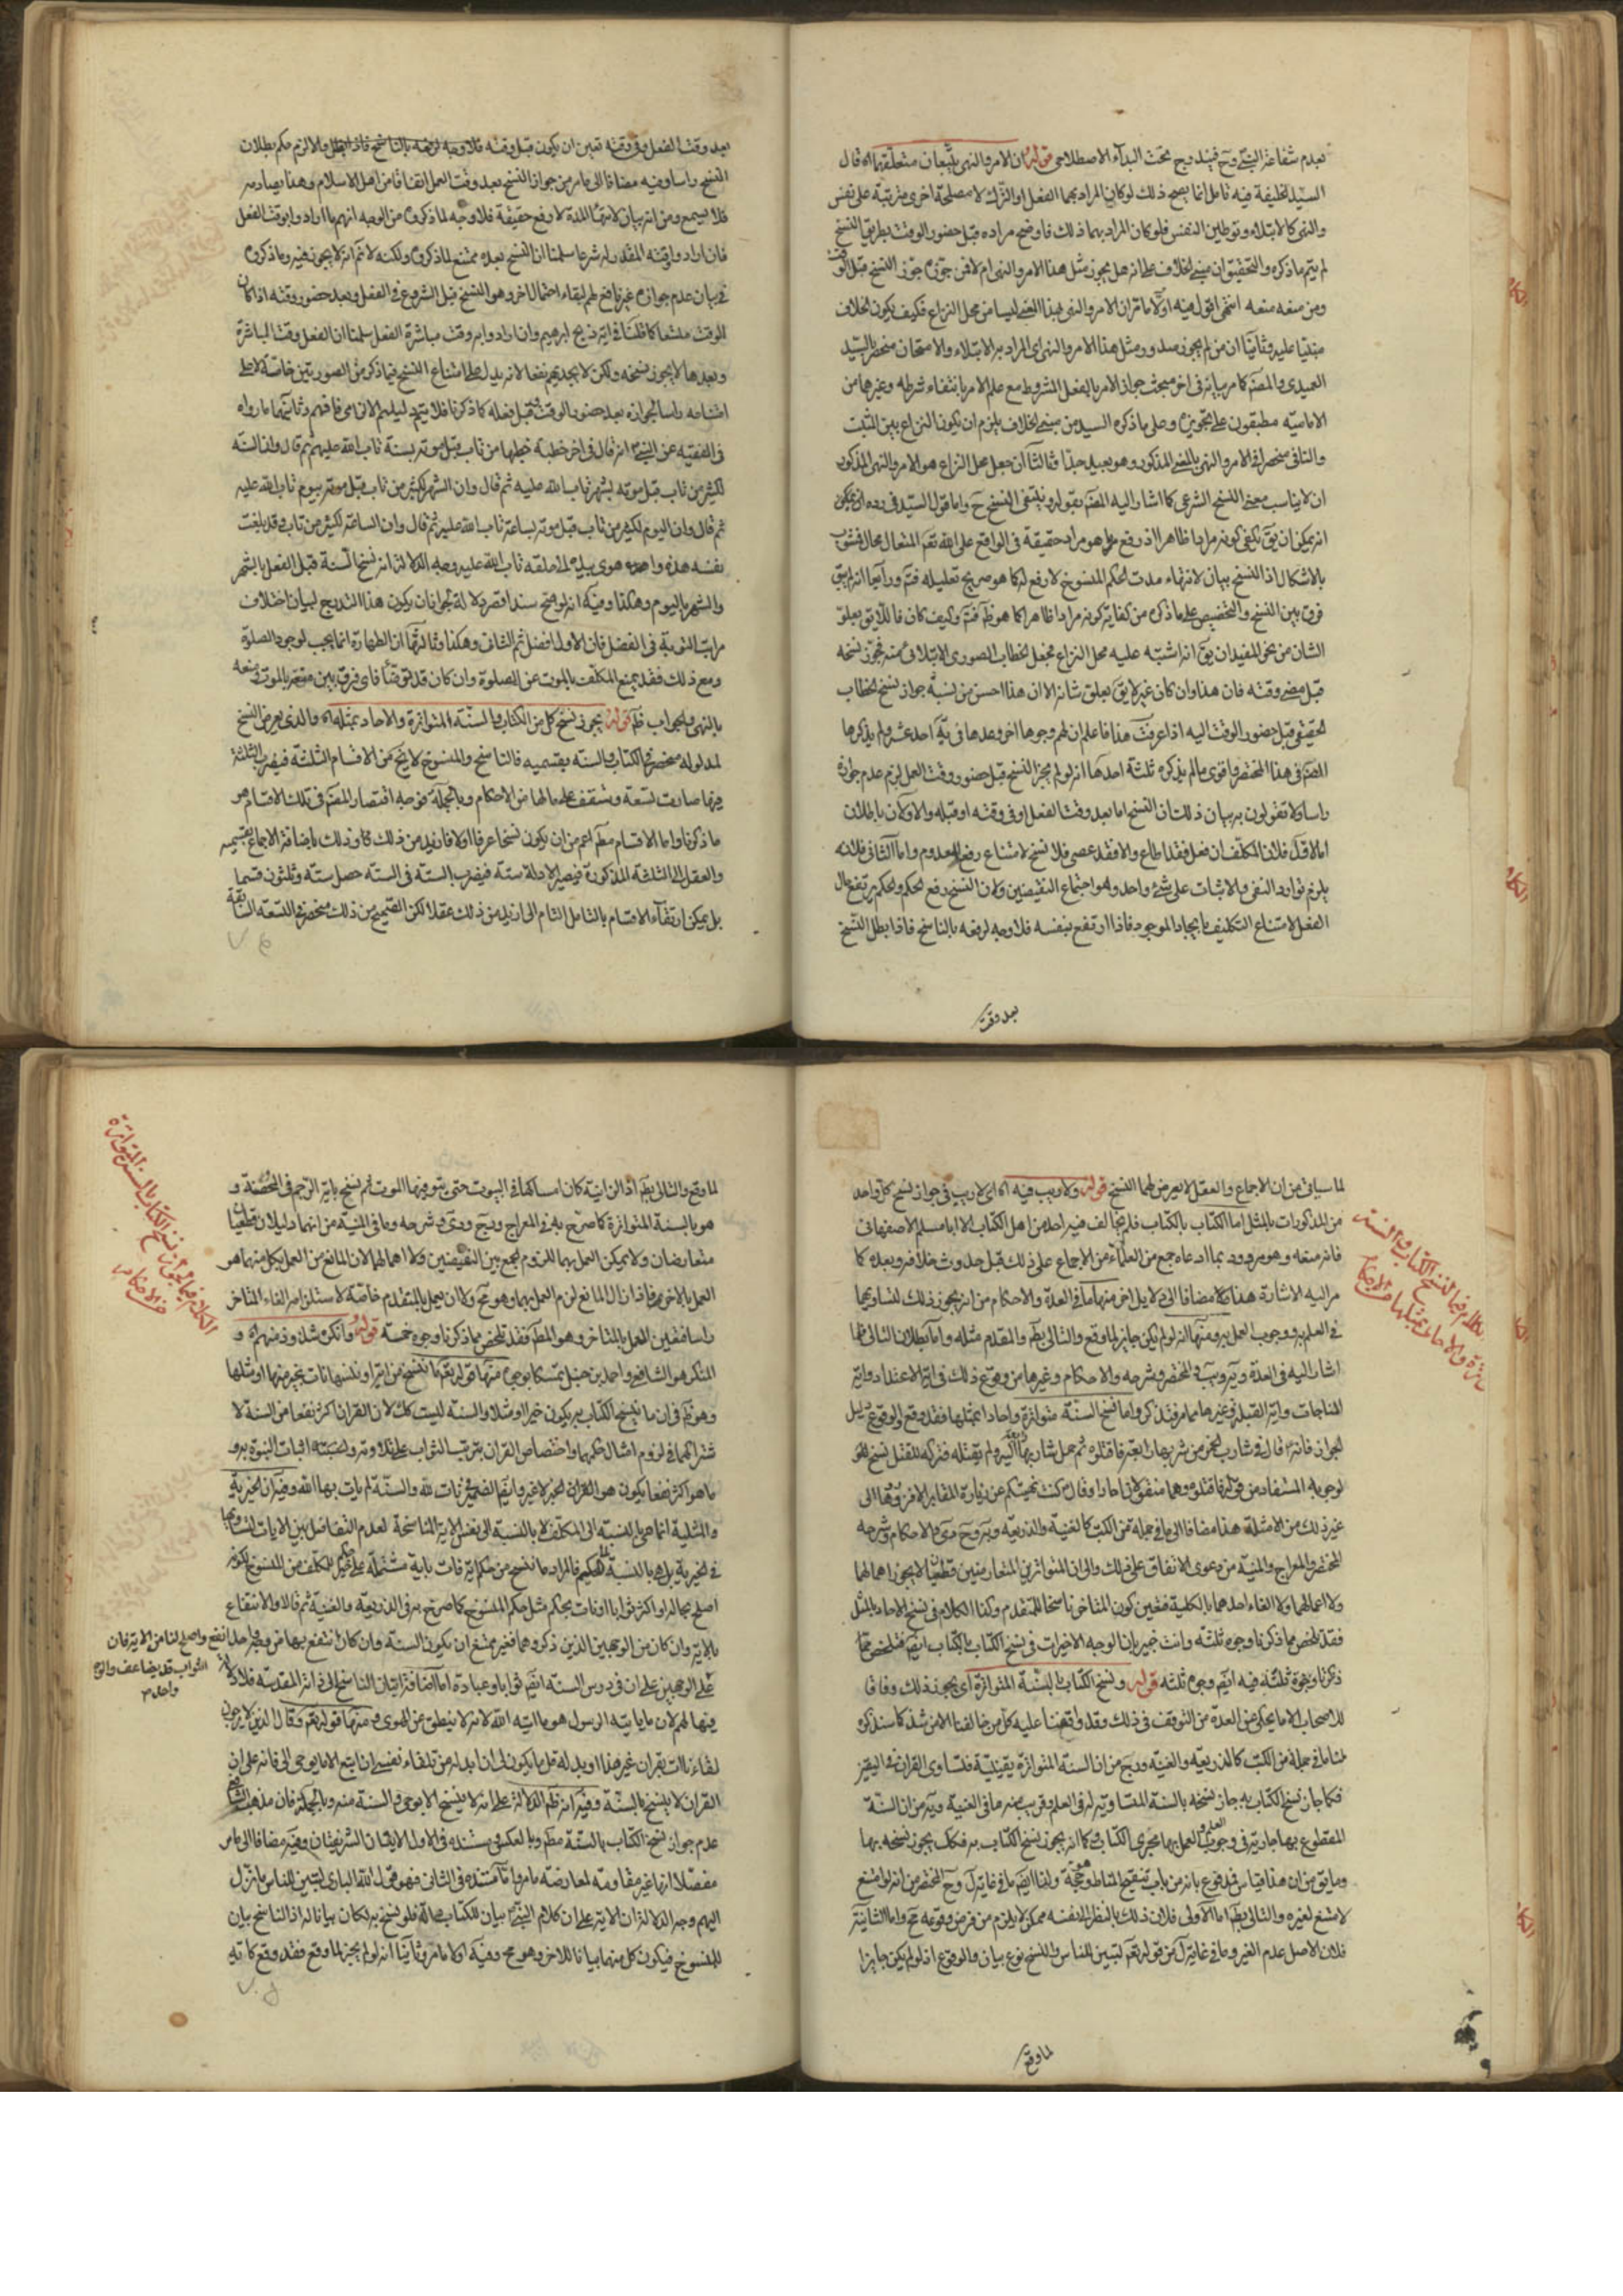 بعدم شفاعة النبي وح فيندرج تحت البداء الاصطلاحي قوله ان الامر والنهي يتبعان متعلقهما اه قال
السيد الخليفة فيه تامل انما يصح ذلك لو كان المراد بهما الفعل او الترك لا مصلحة اخرى مترتبة على نفس
والنهي كالابتلاء وتوطين النفس فلو كان المراد بهما ذلك فاوضح مراده قبل حضور الوقت بطريق النسخ
لم يتم ما ذكره والتحقيق ان مبنى الخلاف على انه هل يجوز مثل هذا الامر والنهي ام لا فمن جوزه جوز النسخ قبل الوقت
ومن منعه منعه انتهى اقول فيه اولا ما مر ان الامر والنهي بهذا المعنى ليسا من محل النزاع فكيف يكون الخلاف
مبتنيا عليه وثانيا ان من لم يجوز صدور مثل هذا الامر والنهي اي المراد به الابتلاء والامتحان منحصر بالسيد
العميدي والمصنف كما مر بيانه في اخر مبحث جواز الامر بالفعل المشروط مع علم الامر بانتفاء شرطه وغيرهما من
الامامية مطبقون على تجويزه وعلى ما ذكره السيد من مبنى الخلاف يلزم ان يكون النزاع بين المثبت
والنافي منحصرا في الامر والنهي بالمعنى المذكور وهو بعيد جدا وثالثا ان جعل محل النزاع هو الامر والنهي المذكور
ان لا يناسب معنى النسخ الشرعي كما اشار اليه المصنف بقوله وينتفي النسخ ح واما قول السيد في رده انه يمكن
انه يمكن ان يق يكفي كونه مرادا ظاهرا اذ رفع ما هو مراد حقيقة في الواقع على الله تعالى المتعال محال فمشوب
بالاشكال اذ النسخ بيان لانتهاء مدت الحكم المنسوخ لا رفع له كما هو صريح تعليله فتم ورابعا انه لم يبق
فرق بين النسخ والتخصيص على ما ذكره من كفاية كونه مرادا ظاهرا كما هو ظ فتم وكيف كان فاللايق بعلو
الشان من نحو المفيد ان يق انه اشتبه عليه محل النزاع فجعل الخطاب الصوري الابتلائي منه فجوز نسخه
قبل مضي وقته فان هذا وان كان غير لايق بعلو شانه الا ان هذا احسن من نسبة جواز نسخ الخطاب
الحقيقي قبل حضور الوقت اليه اذا عرفت هذا فاعلم ان لهم وجوها اخر وعدها في ية احد عشر ولم يذكرها
المصنف في هذا المختصر واقوى ما لم يذكره ثلثة احدها انه لو لم يجز النسخ قبل حضور وقت العمل لزم عدم جوازه
راسا ولا تقولون به بيان ذلك ان النسخ اما بعد وقت الفعل او في وقته او قبله والاولان باطلان
اما الاول فلان المكلف ان فعل فقد اطاع والا فقد عصى فلا نسخ لامتناع رفع المعدوم واما الثاني فلانه
يلزم توارد النفي والاثبات على شيء واحد وهو اجتماع النقيضين ولان النسخ رفع الحكم والحكم يرتفع حال
الفعل لامتناع التكليف بايجاد الموجود فاذا ارتفع بنفسه فلا وجه لرفعه بالناسخ فاذا بطل النسخ
بعد وقت
بعد وقت الفعل وفي وقته تعين ان يكون قبل وقته فلا وجه لرفعه بالناسخ فاذا بطل والا لزم حكم بطلان
النسخ راسا وفيه مضافا الى ما مر من جواز النسخ بعد وقت العمل اتفاقا من اهل الاسلام وهنا يصادمه
فلا يسمع ومن انه بيان لانتهاء المدة لا رفع حقيقة فلا وجه لما ذكروه من الوجه انهم ما ارادوا بوقت الفعل
فان ارادوا وقته المقدر له شرعا سلمنا ان النسخ بعده ممتنع لما ذكروه ولكنه لا نم انه لا يجوز فيه وما ذكروه
في بيان عدم جوازه غير نافع لهم لبقاء احتمال اخر وهو النسخ قبل الشروع في الفعل وبعد حضور وقته اذا كان
الوقت متسعا كما قلنا في اية ذبح ابرهيم وان ارادوا به وقت مباشرة الفعل سلمنا ان الفعل وقت المباشرة
وبعدها لا يجوز نسخه ولكن لا يجديهم نفعا لانه يدل على امتناع النسخ فيما ذكر من الصورتين خاصة لا على
امتناعه راسا لجوازه بعد حضور الوقت وقبل فعله كما ذكرنا فلا يتم دليلهم الالزامي فافهم وثانيهما ما رواه
في الفقيه عن النبي انه قال في اخر خطبة خطبها من تاب قبل موته بسنة تاب الله عليه ثم قال وان السنة
لكثير من تاب قبل موته بشهر تاب الله عليه ثم قال وان الشهر لكثير من تاب قبل موته بيوم تاب الله عليه
ثم قال وان اليوم لكثير من تاب قبل موته بساعة تاب الله عليه ثم قال وان الساعة لكثير من تاب وقد بلغت
نفسه هذه واهوى بيده الى حلقه تاب الله عليه وجه الدلالة انه نسخ السنة قبل الفعل بالشهر
والشهر باليوم وهكذا وفيه انه لو صح سندا قصر دلالة لجواز ان يكون هذا التدرج لبيان اختلاف
مراتب التوبة في الفضل فان الاول افضل ثم الثاني وهكذا وثالثها ان الطهارة انما يجب لوجوب الصلوة
ومع ذلك فقد يمنع المكلف بالموت عن الصلوة وان كان قد توضأ فاي فرق بين منعه بالموت ومنعه
بالنهي والجواب ظ قوله يجوز نسخ كل من الكتاب والسنة المتواترة والاحاد بمثله اه والذي يعرض النسخ
لمدلوله منحصر في الكتاب والسنة بقسميه فالناسخ والمنسوخ لا يخ من الاقسام الثلثة فيضرب الثلثة
فيها صارت تسعة وستقف على ما لها من الاحكام وبالجملة فوجه اقتصار المصنف في تلك الاقسام هو
ما ذكرنا واما الاقسام مط اعم من ان يكون نسخا عرفا اولا فازيد من ذلك كما وذلك باضافة الاجماع بقسميه
والعقل الى الثلثة المذكورة فيصير الادلة ستة فيضرب الستة في الستة حصل ستة وثلثون قسما
بل يمكن ارتقاء الاقسام بالتامل التام الى ازيد من ذلك عقلا لكن الصحيح من ذلك منحصر في التسعة السابقة
لما سياتي من ان الاجماع والعقل لا يعرض لهما النسخ قوله ولا ريب فيه اه اي لا ريب في جواز نسخ كل واحد
من المذكورات بالمثل اما الكتاب بالكتاب فلم يخالف فيه احد من اهل الكتاب الا ابا مسلم الاصفهاني
فانه منعه وهو مردود بما ادعاه جمع من العلماء من الاجماع على ذلك قبل حدوث خلافه وبعده كما
مر اليه الاشارة هذا مضافا الى لا يدل اخر منها ما في العدة والاحكام من انه يجوز ذلك لتساويهما
في العلم به ووجوب العمل به ومنها انه لو لم يكن جايزا لما وقع والتالي بط والمقدم مثله واما بطلان التالي فلما
اشار اليه في العدة وية ويب والمختصر وشرحه والاحكام وغيرها من وقوع ذلك في اية الاعتداد واية
المناجات واية القبلة وغيرها مما مر فتذكر واما نسخ السنة متواترة واحادا بمثلها فقد وقع والوقوع دليل
الجواز فانه قال في شارب الخمر من شربها رابعة فاقتلوه ثم حمل شاربها اليه ولم يقتله فتركه للقتل نسخ له
لوجوبه المستفاد من قوله فاقتلوه وهما منقولان احادا وقال كنت نهيتكم عن زيارة المقابر الا فزوروها الى
غير ذلك من الامثلة هذا مضافا الى ما في جملة من الكتب كالغنية والذريعة وير وح وى والاحكام وشرحه
المختصر والمعراج والمنية من دعوى الاتفاق على ذلك والى ان المتواترين المتعارضين قطعيان لا يجوز اهمالهما
ولا اعمالهما ولا الغاء احدهما بالكلية فتعين كون المتاخر ناسخا للمتقدم وكذا الكلام في نسخ الاحاد بالمثل
فقد تلخص مما ذكرنا وجوه ثلثة وانت خبير بان الوجه الاخير ات في نسخ الكتاب بالكتاب ايضا فتلخص مما
ذكرنا وجوه ثلثة فيه ايضا وجوه ثلثه قوله ونسخ الكتاب بالسنة المتواترة اي يجوز ذلك وفاقا
للاصحاب الا ما يحكى عن العدة من التوقف في ذلك وقد وافقنا عليه كل من خالفنا الا من شذ كما سنذكره
لنا ما في جملة من الكتب كالذريعة والغنية ودبج من ان السنة المتواترة يقينية فتساوى القران في اليقين
فكما جاز نسخ الكتاب به جاز نسخه بالسنة المتساوية له في العلم وقريب منه ما في الغنية وية من ان السنة
المقطوع بها جارية في وجوب العلم والعمل بها مجرى الكتاب وكما انه يجوز نسخ الكتاب به فكك يجوز نسخه بها
وما يق من ان هذا قياس فمدفوع بانه من باب تنقيح المناط وهو حجة ولنا ايضا ما في غاية ل وح المختصر من انه لو امتنع
لامتنع لغيره والتالي بط اما الاولى فلان ذلك بالنظر الى نفسه ممكن لا يلزم من فرض وقوعه مح واما الثانية
فلان الاصل عدم الغير وما في غاية ل من قوله تعم لتبين للناس والنسخ نوع بيان والوقوع اذ لو لم يكن جايزا
لما وقع
لما وقع والتالي بط اذ الزانية كان امساكها في البيوت حتى يتوفيها الموت ثم نسخ باية الرجم في المحصنة و
هو بالسنة المتواترة كما صرح به في المعراج ودبج ودى وشرحه وما في المنية من انهما دليلان قطعيان
متعارضان ولا يمكن العمل بهما للزوم الجمع بين النقيضين ولا اهمالهما لان المانع من العمل بكل منهما هو
العمل بالاخر فاذا زال المانع لزم العمل بهما وهو مح ولا ان يعمل بالمتقدم خاصة لاستلزامه الغاء المتاخر
راسا فتعين العمل بالمتاخر وهو المط فقد تلخص مما ذكرنا وجوه خمسة قوله وانكره شذوذ منهم اه و
المنكر هو الشافعي واحمد بن حنبل تمسكا بوجوه منها قوله تعم ما ننسخ من اية او ننسها نات بخير منها او مثلها
وهو ظ في ان ما ينسخ الكتاب به يكون خيرا او مثلا والسنة ليست كك لان القران اكثر نفعا من السنة لا
شتراكهما في لزوم امتثال حكمهما واختصاص القران بترتب الثواب على تلاوته وحسبته اثبات النبوة به و
ما هو اكثر نفعا يكون هو القران لخير لا غير وايضا الضمير في نات لله والسنة لم يات بها الله وفيه ان الخيرية
والمثلية انما هي بالنسبة الى المكلف لا بالنسبة الى نفس الاية الناسخة لعدم التفاضل بين الايات لتساويها
في الخيرية بل هو بالنسبة الى الحكم فالمراد ما ننسخ من حكم اية نات باية مشتملة على حكم خير للمكلف من المنسوخ لكونه
اصلح بحاله او اكثر ثوابا او نات بحكم مثل حكم المنسوخ كما صرح به في الذريعة والغنية ثم قالا والانتفاع
بالاية وان كان من الوجهين الذين ذكروهما فغير ممتنع ان يكون السنة وان كان انتفع بها من وجه واحد انفع واصلح لنا من الاية فان
الثواب قد يضاعف والوجه
واحد م
على الوجهين على ان في دروس السنة ايضا ثوابا وعبادة اما اضافة اتيان الناسخ الى ذاته المقدسة فلا دلالة
فيها لهم لان ما ياتيه الرسول هو ما اليه الله لانه لا ينطق عن الهوى ومنها قوله تعم وقال الذين لا يرجون
لقاءنا ائت بقران غير هذا او بدله قل ما يكون لي ان ابدله من تلقاء نفسي ان اتبع الا ما يوحى الي فانه على ان
القران لا ينسخ بالسنة وفيه انه ظ الدلالة على انه لا ينسخ الا بوحي والسنة منه وبالجملة فان مذهب الشافعي
عدم جواز نسخ الكتاب بالسنة مط وبالعكس ومستنده في الاول الايتان الشريفتان وفيه مضافا الى ما مر
مفصلا انها غير مقاومة لمعارضة ما مر واما مستنده في الثاني فهو قول الله الباري لتبين للناس ما نزل
اليهم وجه الدلالة ان الاية على ان كلام النبي بيان للكتاب فلو نسخ به لكان بيانا له اذ الناسخ بيان
للمنسوخ فيكون كل منهما بيانا للاخر وهو مح وفيه اولا ما مر وثانيا انه لو لم يجز لما وقع فقد وقع كما في اية
الكلام في نسخ الكتاب والسنة
المتواترة والاحاد بمثلها من الاحكام
الكلام في جواز نسخ الكتاب بالسنة المتواترة
من الاحكام